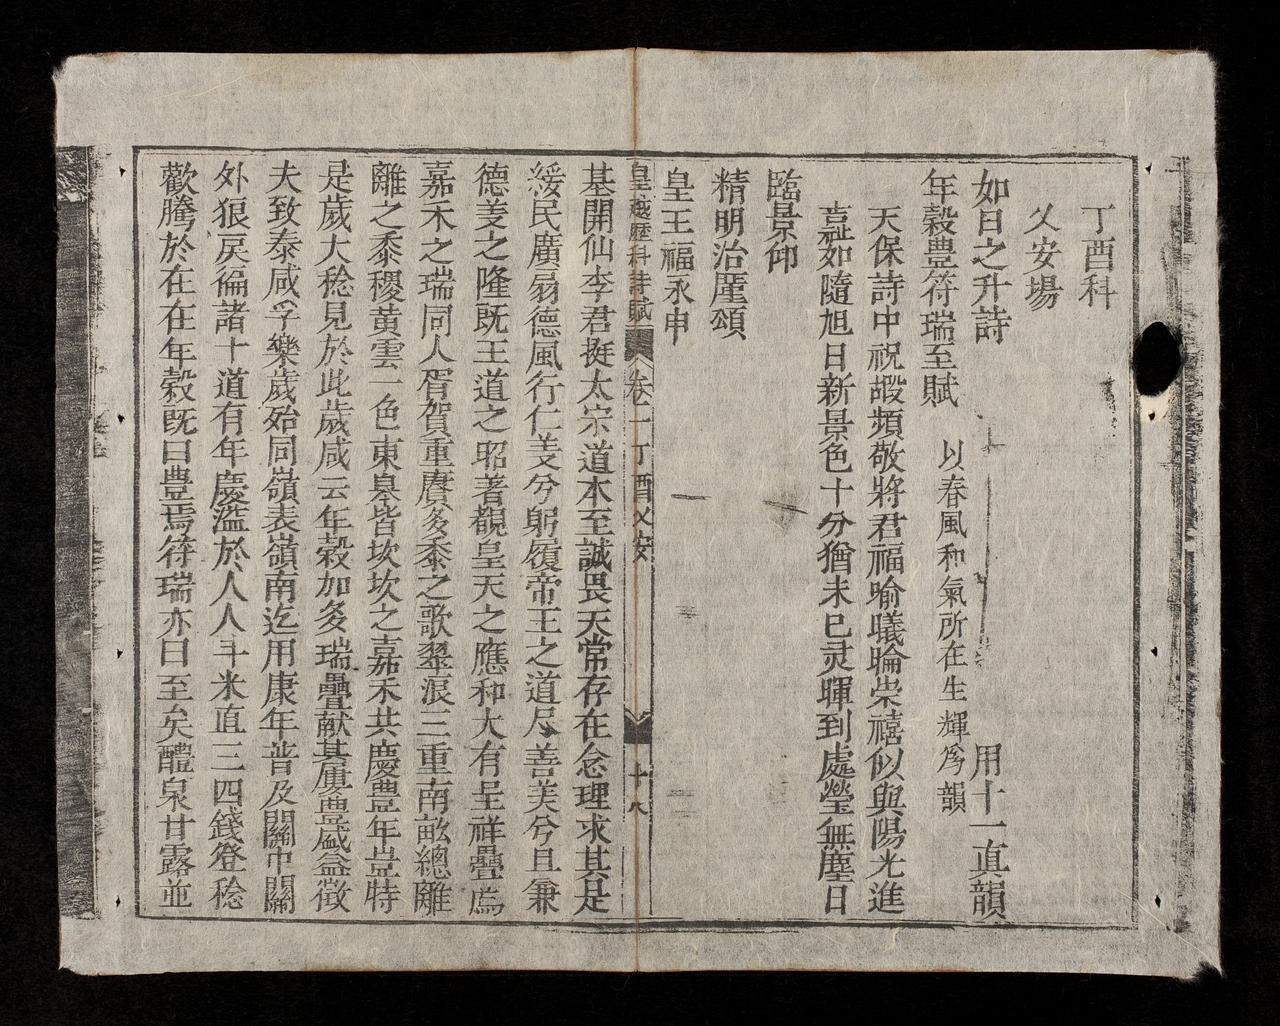 丁酉科
乂安場
如日之升詩　用十一真韻
年穀豊符瑞至賦　以春風和氣所在生輝為韻
天保詩中祝嘏頻敬將君福喻曦輪崇禧似與陽光進
喜祉如隨旭日新景色十分猶未已灵暉到處瑩無塵日
臨景仰
精明治廑頌
皇王福永申
皇越歷科詩賦　卷一丁酉乂安　十八
基開仙李君挺太宗道本至誠畏天常存在念理求其足
綏民廣扇德風行仁義兮躬履帝王之道尽善美兮且兼
德義之隆既王道之昭著覩皇天之應和大有呈祥疊為
嘉禾之瑞同人胥賀重賡多黍之歌翠浪三重南畝總離
離之黍稷黃雲一色東皋皆坎坎之嘉禾共慶豊年豈特
是歲大稔見於此歲咸云年穀加多瑞疊献其屢豊盛益徵
夫致泰咸孚樂歲殆同嶺表嶺南迄用康年普及關中關
外狼戾徧諸十道有年慶溢於人人斗米直三四錢登稔
歡騰於在在年穀既曰豊焉符瑞亦曰至矣醴泉甘露並